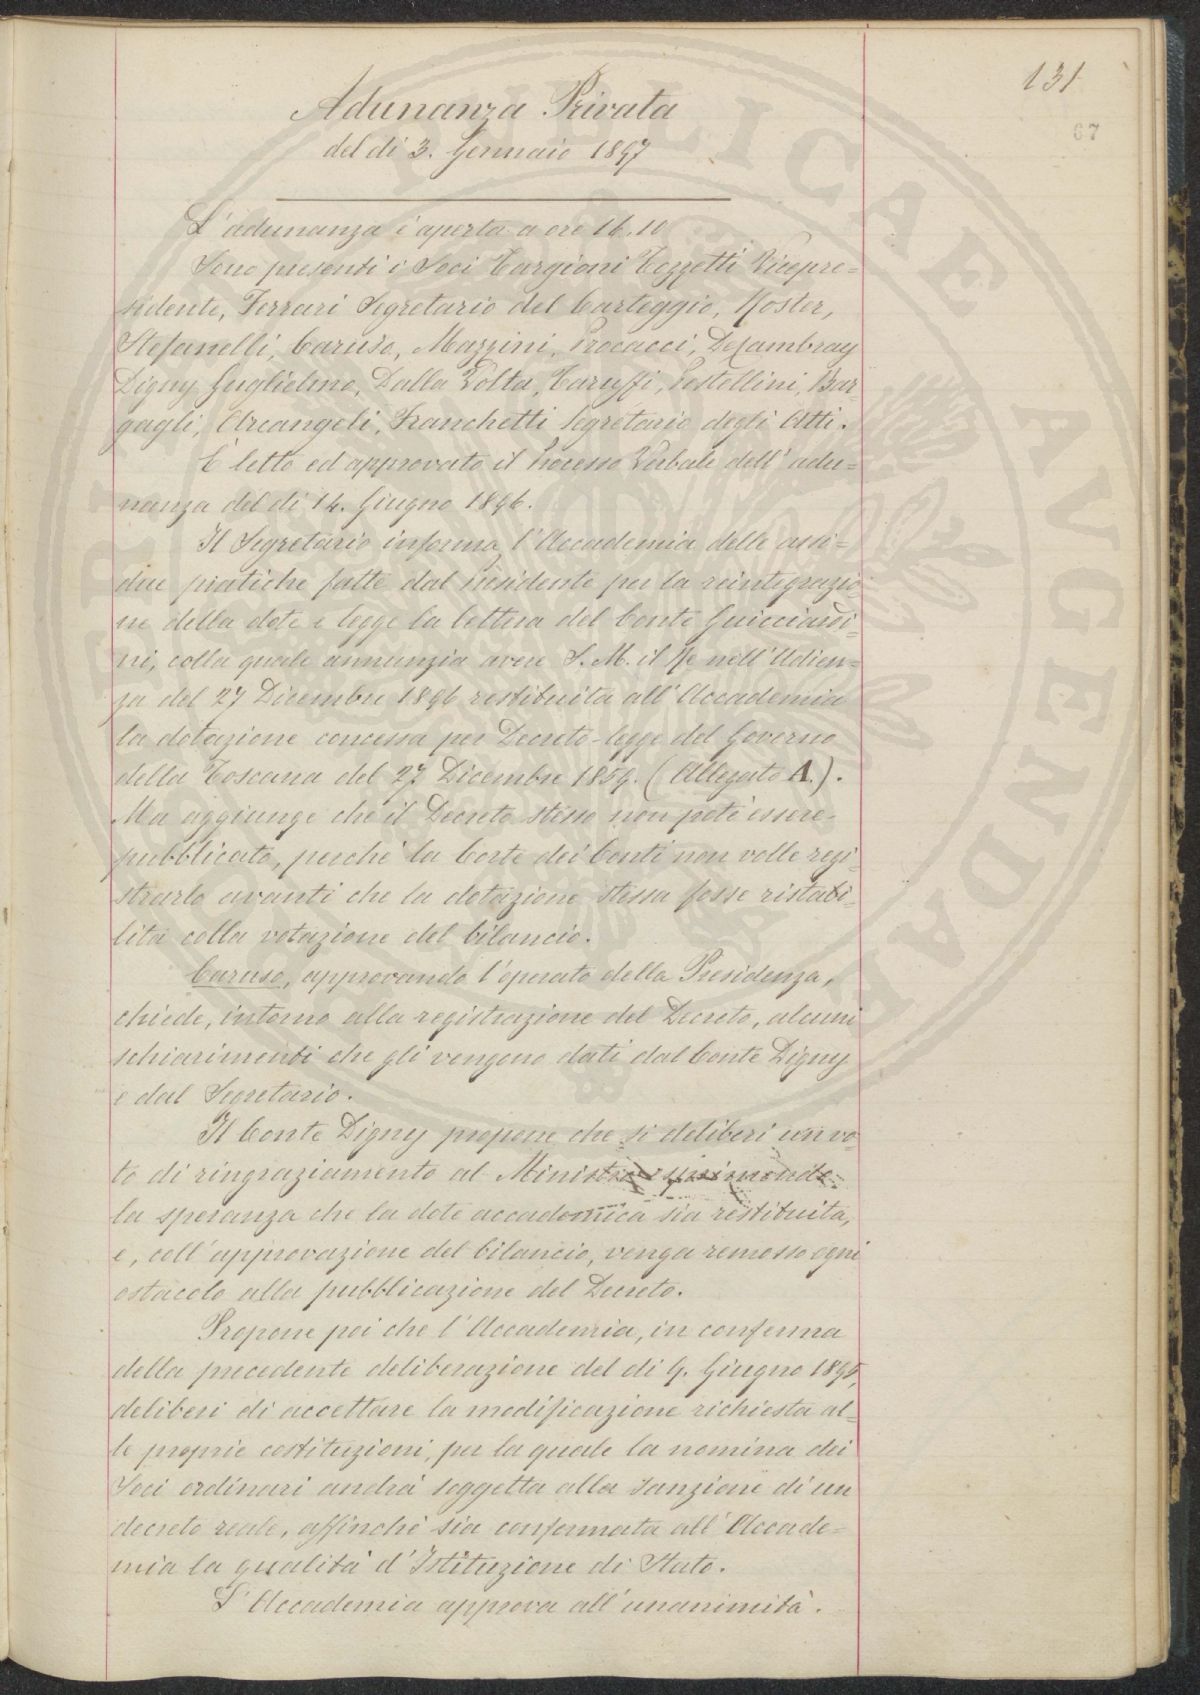 131
67
Adunanza Privata
del dì 3. Gennaio 1897
L'adunanza è aperta a ore 16.10
Sono presenti i Soci Targioni Tozzetti Vicepre=
sidente, Ferrari Segretario del Carteggio, Roster,
Stefanelli, Caruso, Mazzini, Procacci, De Cambray
Digny Guglielmo, Dalla Volta, Caruffi, Pestellini, Bar=
gagli, Arcangeli, Franchetti Segretario degli Atti.
È letto ed approvato il Processo Verbale dell'adu=
nanza del dì 14. Giugno 1896.
Il Segretario informa l'Accademia delle assi=
due pratiche fatte dal Presidente per la reintegrazio
ne della dote e legge la lettera del Conte Guicciardi=
ni, colla quale annunzia avere S. M. il Re nell'Udien=
za del 27 Dicembre 1896 restituita all'Accademia
la dotazione concessa per Decreto-legge del Governo
della Toscana del 27. Dicembre 1859. (Allegato A.).
Ma aggiunge che il Decreto stesso non potè essere
pubblicato, perchè la Corte dei Conti non volle regi=
strarlo avanti che la dotazione stessa fosse ristabi=
lita colla votazione del bilancio.
Caruso, approvando l'operato della Presidenza,
chiede, intorno alla registrazione del Decreto, alcuni
schiarimenti che gli vengono dati dal Conte Digny
e dal Segretario.
Il Conte Digny propone che si deliberi un vo=
to di ringraziamento al Ministro esprimendo
la speranza che la dote accademica sia restituita,
e, coll'approvazione del bilancio, venga remosso ogni
ostacolo alla pubblicazione del Decreto.
Propone poi che l'Accademia, in conferma
della precedente deliberazione del dì 9. Giugno 1895,
deliberi di accettare la modificazione richiesta al=
le proprie costituzioni, per la quale la nomina dei
Soci ordinari andrà soggetta alla sanzione di un
decreto reale, affinchè sia confermata all'Accade=
mia la qualità d'Istituzione di Stato.
L'Accademia approva all'unanimità.